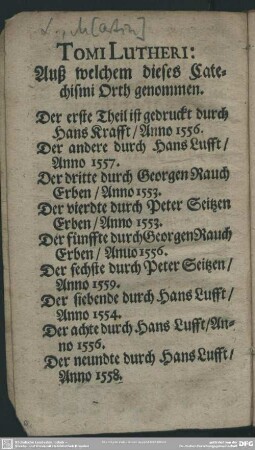 TOMI LUTHERI:
Auß welchem dieses Cate-
chismi Orth genommen.
Der erste Theil ist gedruckt durch
Hans Krafft / Anno 1556.
Der andere durch Hans Lufft /
Anno 1557.
Der dritte durch Georgen Rauch
Erben / Anno 1553.
Der vierdte durch Peter Seitzen
Erben / Anno 1553.
Der fünffte durch Georgen Rauch
Erben / Anuo 1556.
Der sechste durch Peter Seitzen /
Anno 1559.
Der siebende durch Hans Lufft /
Anno 1554.
Der achte durch Hans Lufft / An-
no 1556.
Der neundte durch Hans Lufft /
Anno 1558.
DFG